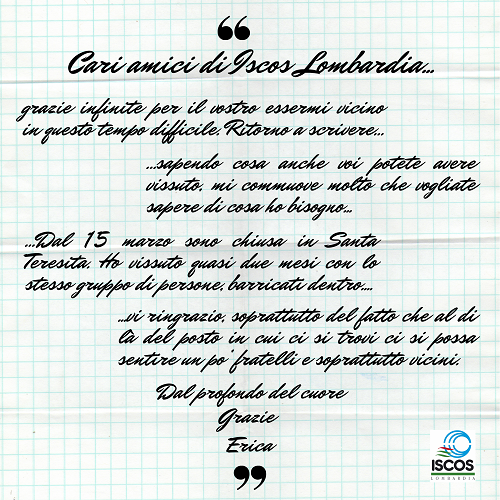 ❝
Cari amici di Iscos Lombardia...
grazie infinite per il vostro essermi vicino
in questo tempo difficile. Ritorno a scrivere...
...sapendo cosa anche voi potete avere
vissuto, mi commuove molto che vogliate
sapere di cosa ho bisogno...
...Dal 15 marzo sono chiusa in Santa
Teresita. Ho vissuto quasi due mesi con lo
stesso gruppo di persone, barricati dentro....
...vi ringrazio, soprattutto del fatto che al di
là del posto in cui ci si trovi ci si possa
sentire un po' fratelli e soprattutto vicini.
Dal profondo del cuore
Grazie
Erica
❞
ISCOS
LOMBARDIA